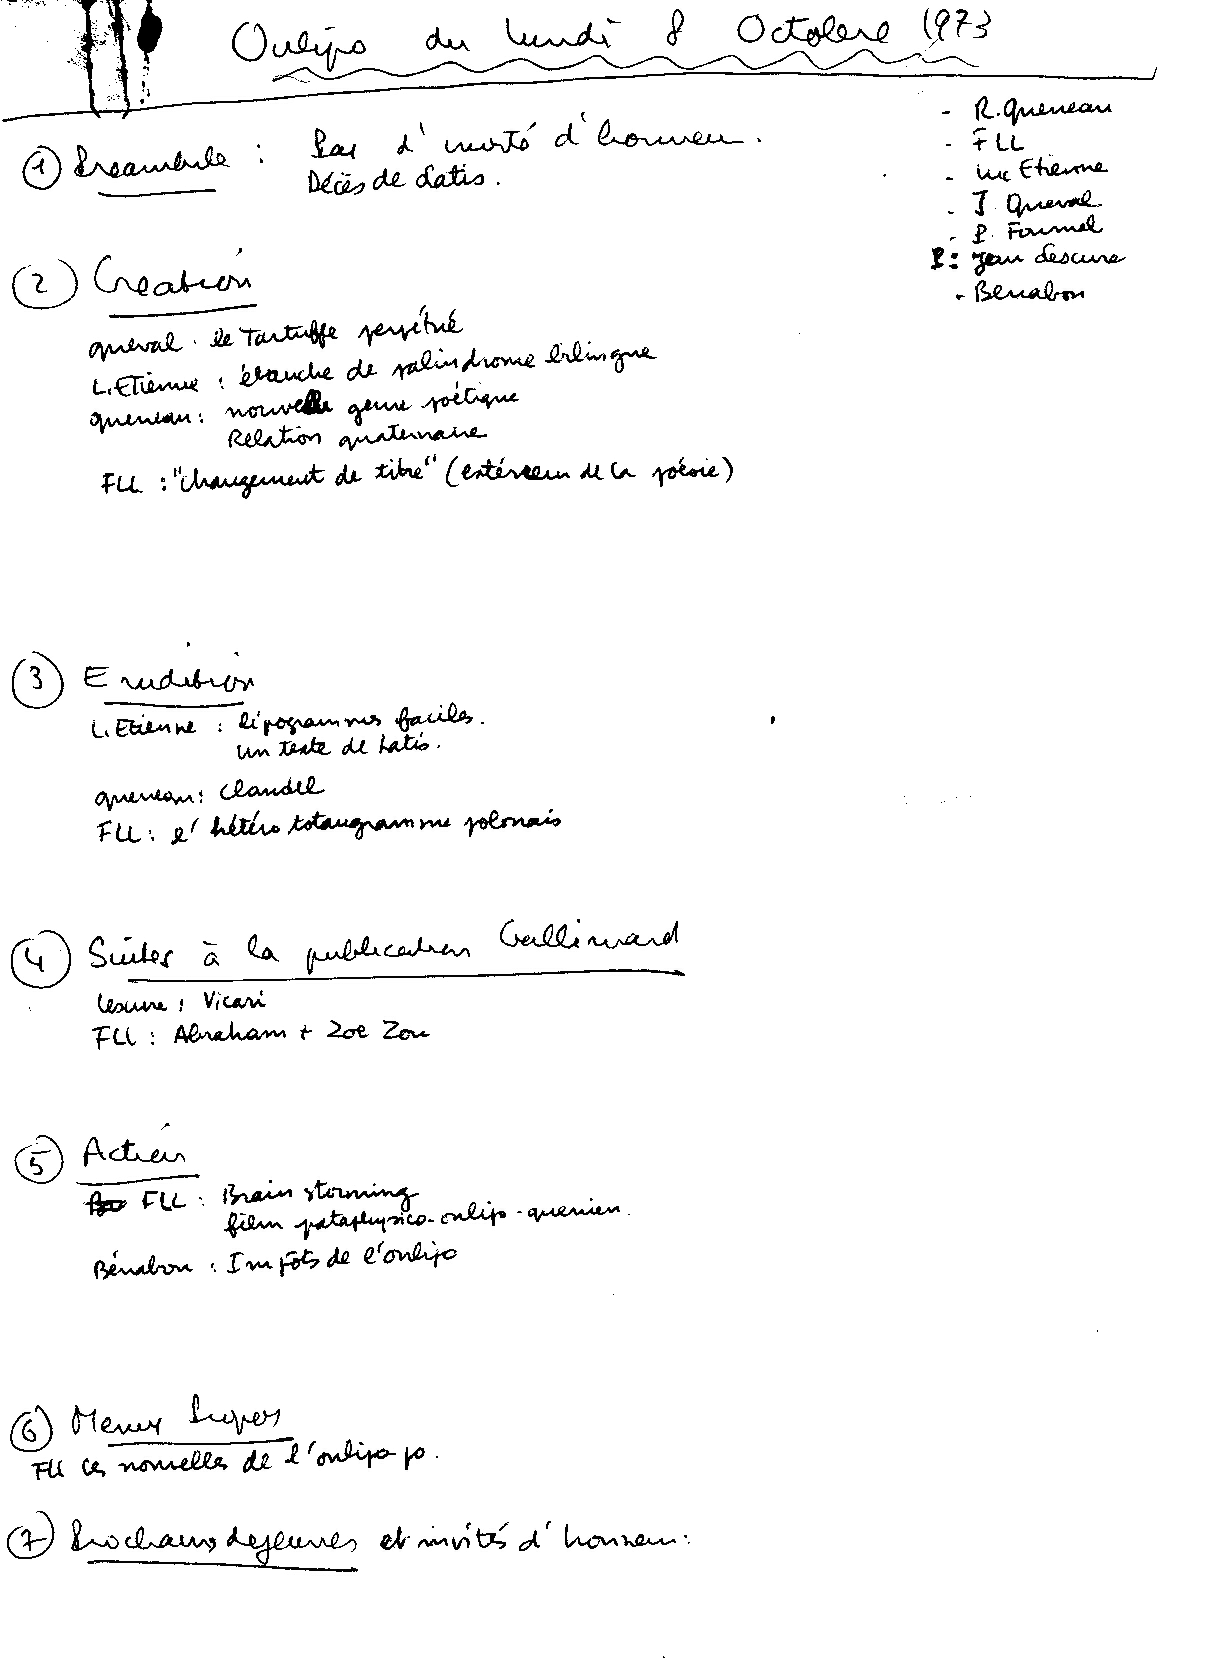 Oulipo du lundi 8 Octobre 1973
- R. Queneau
- FLL
- Luc Etienne
- J. Queval
- P. Fournel
P: Jean Lescure
- Bénabou
① Préambule : Pas d'invité d'honneur.
Décès de Latis.
② Création
Queval . le Tartuffe perpétué
L. Etienne : ébauche de palindrome bilingue
Queneau : nouveau genre poétique
Relation quaternaire
FLL : "changement de titre" (extérieur de la poésie)
③ Erudition
L. Etienne : lipogrammes faciles.
un texte de Latis.
Queneau : Claudel
FLL : l'hétéro totaugramme polonais
④ Suites à la publication Gallimard
Lescure : Vicari
FLL : Abraham + Zoe Zou
⑤ Action
FLL : Brain storming
film pataphysico-oulipo-quenien.
Bénabou : Impôts de l'oulipo
⑥ Menus Propos
FLL les nouvelles de l'oulipo po.
⑦ Prochains dejeuners et invités d'honneur :